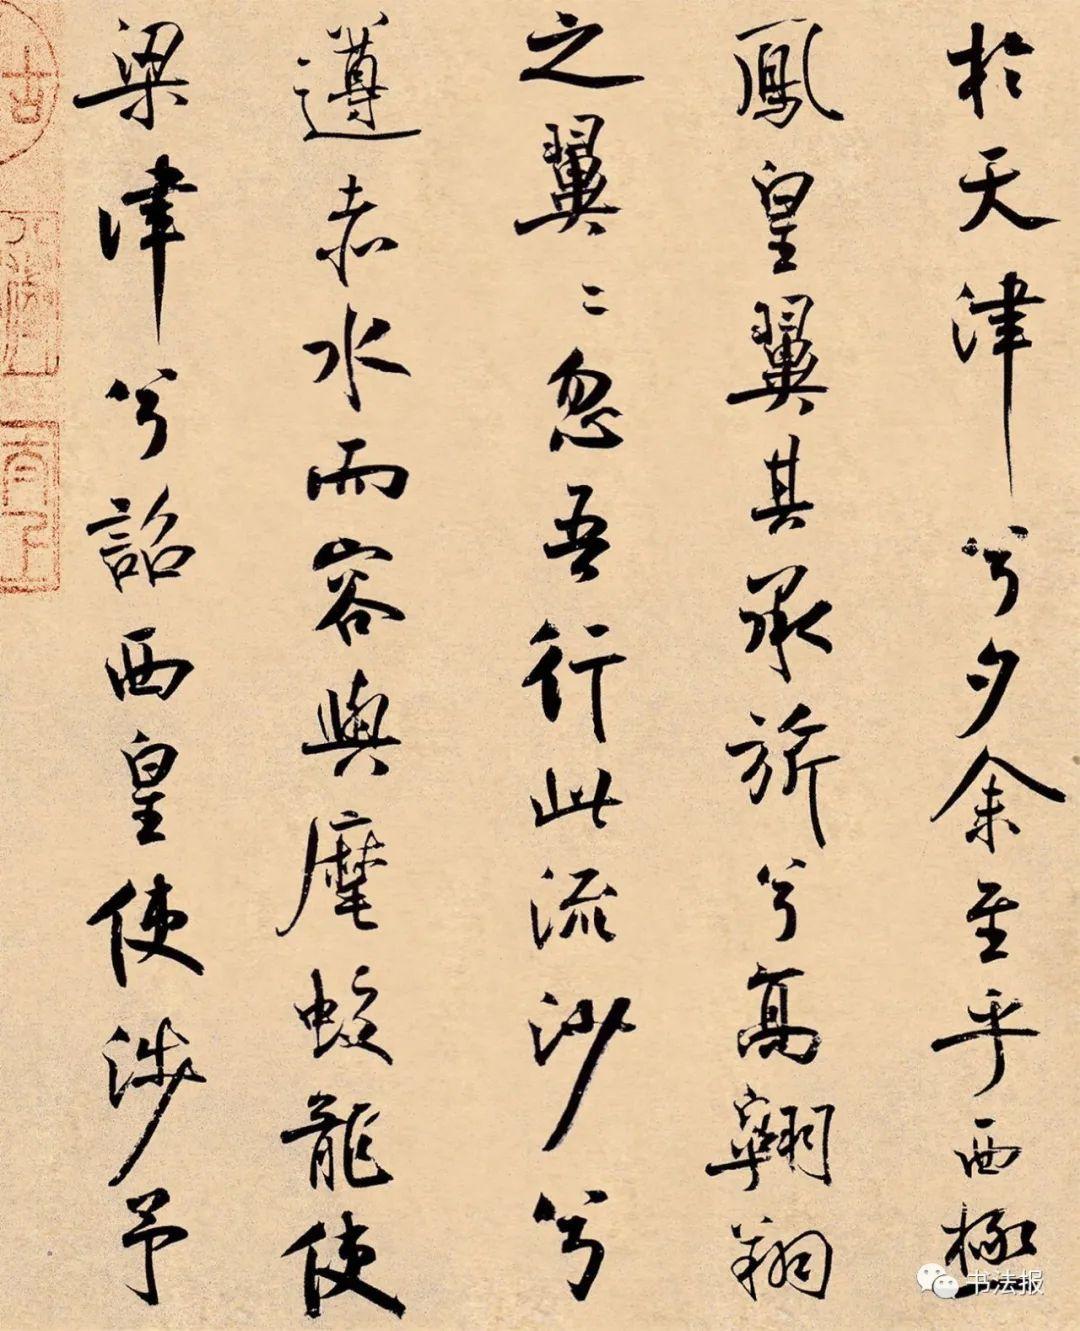 於天津兮夕余至乎西極
鳳皇翼其承旂兮高翱翔
之翼〻忽吾行此流沙兮
遵赤水而容與麾蛟龍使
梁津兮詔西皇使涉予
书法报